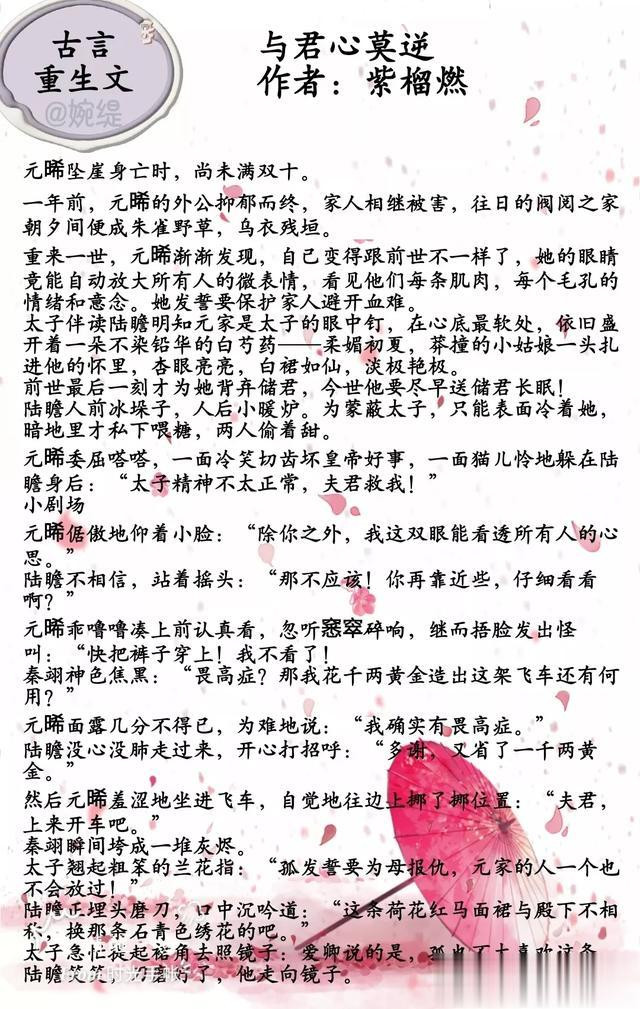 古言
重生文
@婉缇
与君心莫逆
作者：紫榴燃
元晞坠崖身亡时，尚未满双十。
一年前，元晞的外公抑郁而终，家人相继被害，往日的阀阅之家
朝夕间便成朱雀野草，乌衣残垣。
重来一世，元晞渐渐发现，自己变得跟前世不一样了，她的眼睛
竟能自动放大所有人的微表情，看见他们每条肌肉，每个毛孔的
情绪和意念。她发誓要保护家人避开血难。
太子伴读陆瞻明知元家是太子的眼中钉，在心底最软处，依旧盛
开着一朵不染铅华的白芍药——柔媚初夏，莽撞的小姑娘一头扎
进他的怀里，杏眼亮亮，白裙如仙，淡极艳极。
前世最后一刻才为她背弃储君，今世他要尽早送储君长眠！
陆瞻人前冰垛子，人后小暖炉。为蒙蔽太子，只能表面冷着她，
暗地里才私下喂糖，两人偷着甜。
元晞委屈嗒嗒，一面冷笑切齿坏皇帝好事，一面猫儿怜地躲在陆
瞻身后：“太子精神不太正常，夫君救我！”
小剧场
元晞倨傲地仰着小脸：“除你之外，我这双眼能看透所有人的心
思。”
陆瞻不相信，站着摇头：“那不应该！你再靠近些，仔细看看
啊？”
元晞乖噜噜凑上前认真看，忽听窸窣碎响，继而捂脸发出怪
叫：“快把裤子穿上！我不看了！
秦翊神色焦黑：“畏高症？那我花千两黄金造出这架飞车还有何
用？”
元晞面露几分不得已，为难地说：“我确实有畏高症。”
陆瞻没心没肺走过来，开心打招呼：“多谢，又省了一千两黄
金。”
然后元晞羞涩地坐进飞车，自觉地往边上挪了挪位置：“夫君，
上来开车吧。”
秦翊瞬间垮成一堆灰烬。
太子翘起粗笨的兰花指：“孤发誓要为母报仇，元家的人一个也
不会放过！”
陆瞻正埋头磨刀，口中沉吟道：“这条荷花红马面裙与殿下不相
称，换那条石青色绣花的吧。”
太子急忙提起裙角去照镜子：爱卿说的是，孤也不大喜欢这条
陆瞻笑笑，刀磨好了，他走向镜子。